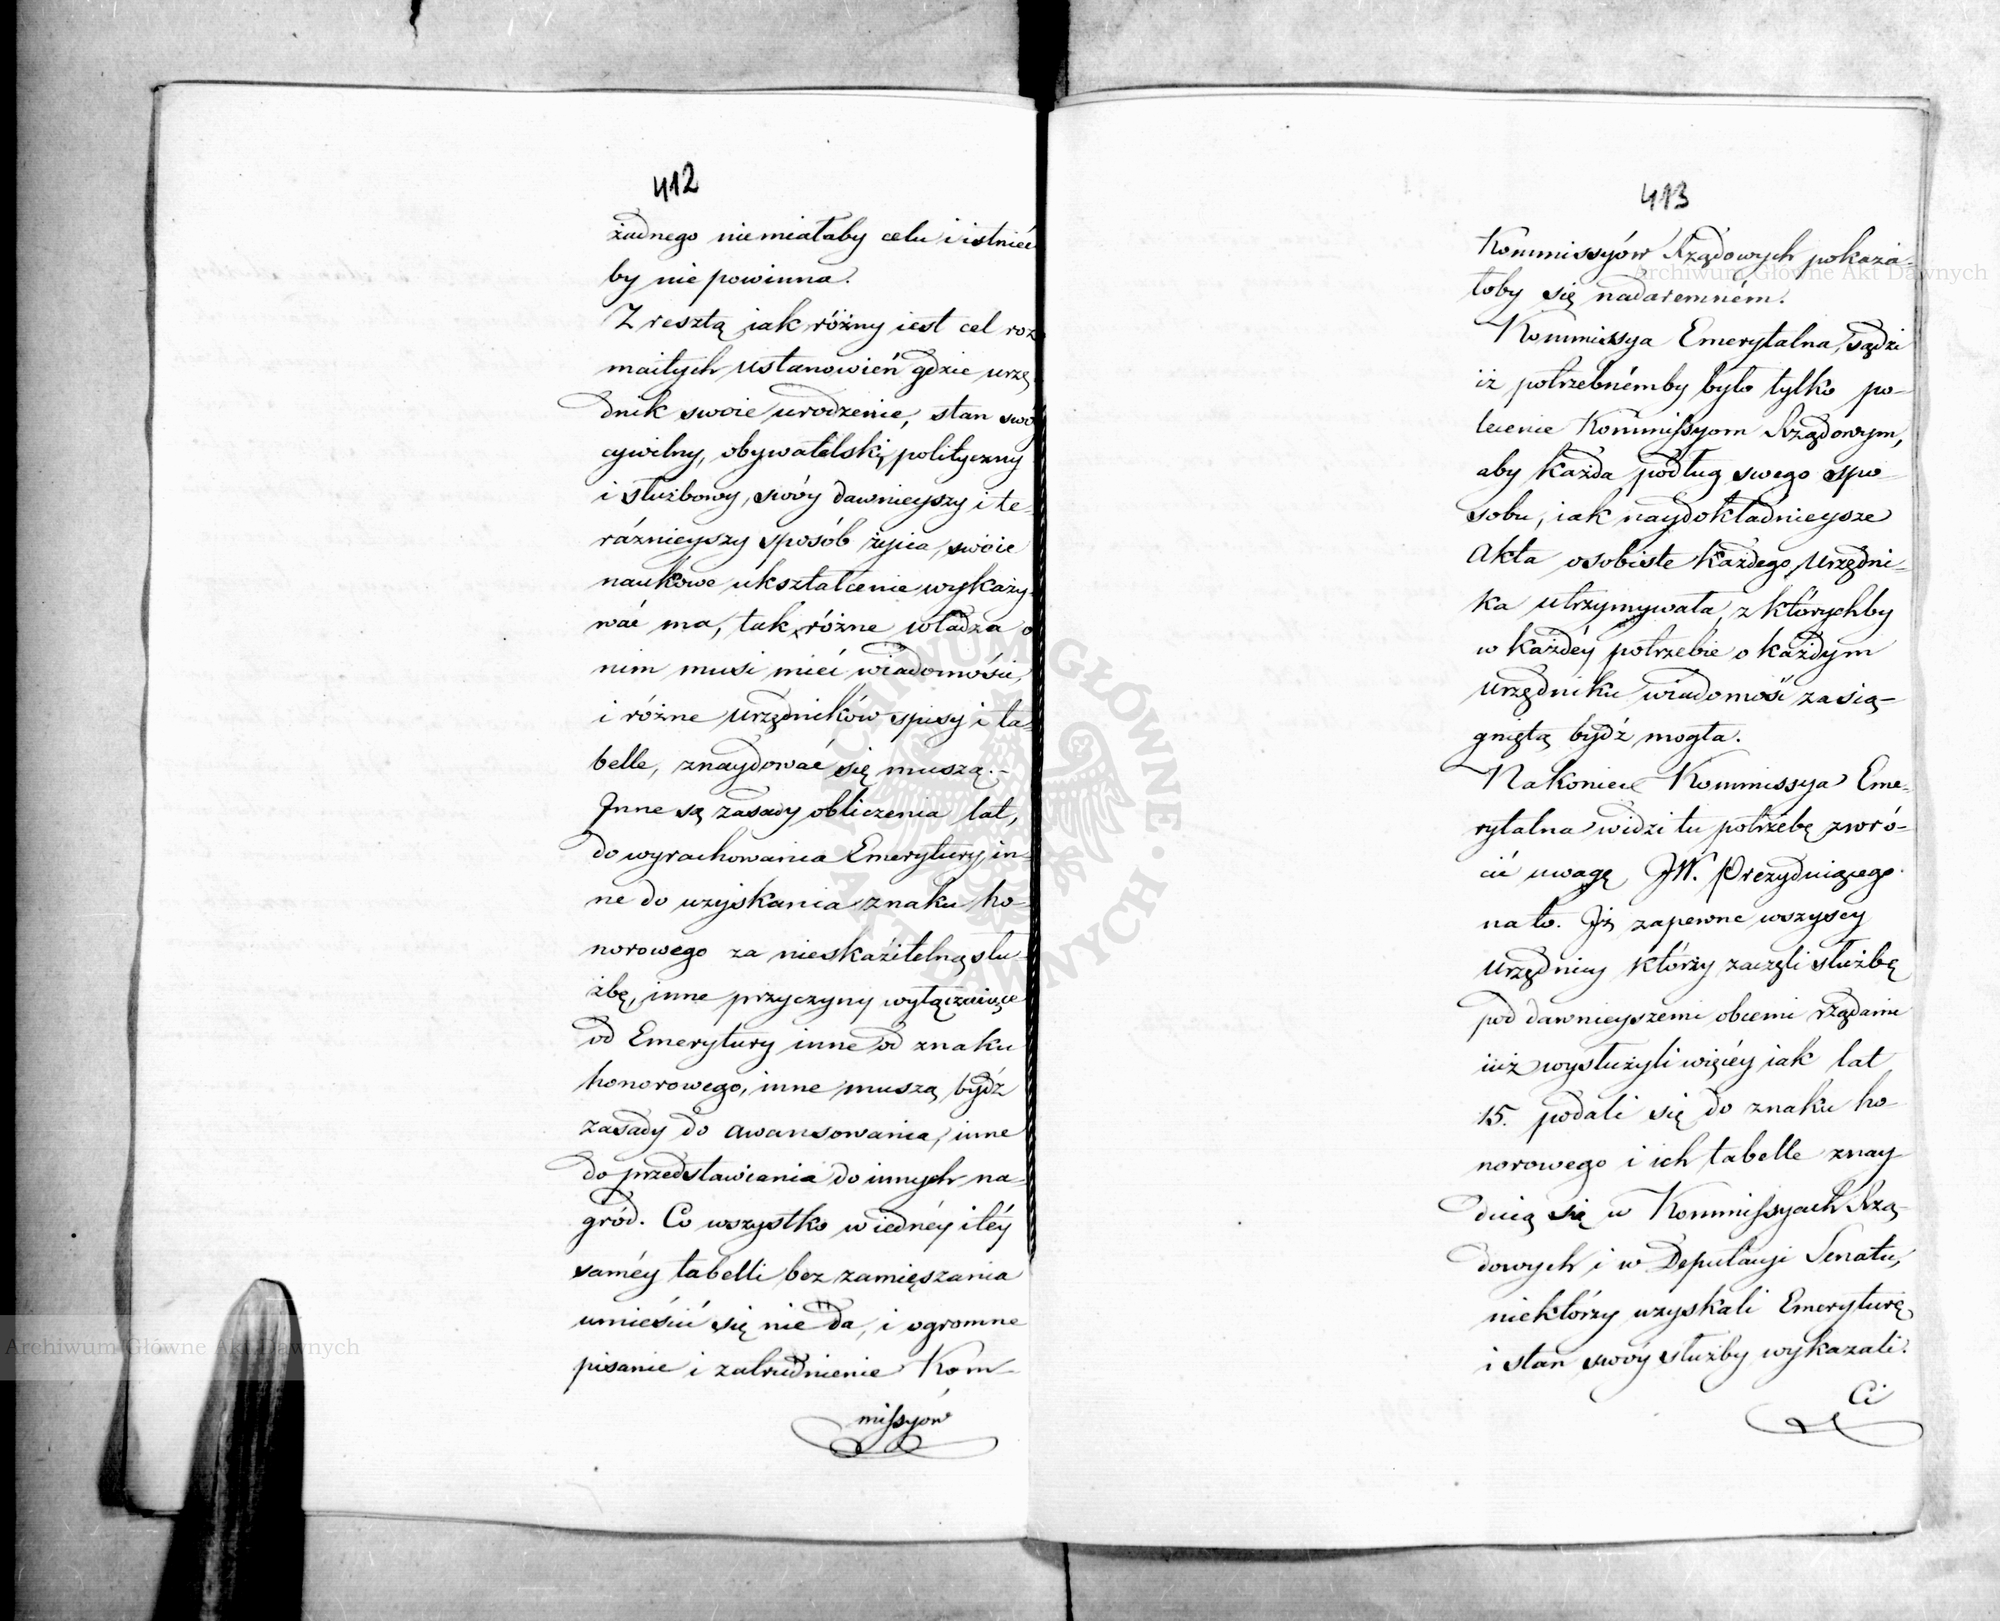 412
żadnego niemiałaby celu i istnieć
by nie powinna.
Z resztą iak różny iest cel roz
maitych ustanowień gdzie urzę
dnik swoie urodzenie, stan swó
cywilny, obywatelski, polityczny
i służbowy, swóy dawnieyszy i te-
ráżnieyszy sposób życia, swóie
naukowe ukształcenie wykazy-
wać ma, tak różne władza o
nim musi mieć wiadomości,
i różne urzędników spisy i ta-
belle, znaydować się muszą.-
Jnne są zasady obliczenia lat,
do wyrachowania Emerytury in-
ne do uzyskania znaku ho-
norowego za nieskazitelną słu-
żbę, inne przyczyny wyłączaiące
od Emerytury inne od znaku
honorowego, inne muszą bydź
zasady do awansowania, inne
do przedstawiania do innych na-
gród. Co wszystko w iednéy i téy
saméy tabelli bez zamięszania
umieścić się nie da, i ogromne
pisanie i zatrudnienie Kom-
missyów
413
Kommissyów Rządowych pokaza-
łoby się nadaremném.
Kommissya Emerytalna, sądzi
iż potrzebnémby było tylko po-
lecenie Kommissyom Rządowym,
aby każda podług swego spo-
sobu, iak naydokładnieysze
Akta osobiste każdego Urzędni-
ka utrzymywała, z którychby
w każdéy potrzebie o każdym
urzędniku wiadomość zasią-
gniętą bydź mogła.
Nakoniec Kommissya Eme-
rytalna widzi tu potrzebę zwró-
cić uwagę JW. Prezyduiącego
na to. Jż zapewne wszyscy
urzędnicy którzy zaczęli służbę
pod dawnieyszemi obcemi rządami
iuż wysłużyli więcéy iak lat
15. podali się do znaku ho
norowego i ich tabelle znay
duią się w Kommissyach Rzą-
dowych i w Deputacyi Senatu,
niektórzy uzyskali Emeryturę
i stan swóy służby wykazali.
Ci
Archiwum Główne Akt Dawnych
Archiwum Główne Akt Dawnych
ARCHIWUM GŁÓWNE · AKT DAWNYCH ·